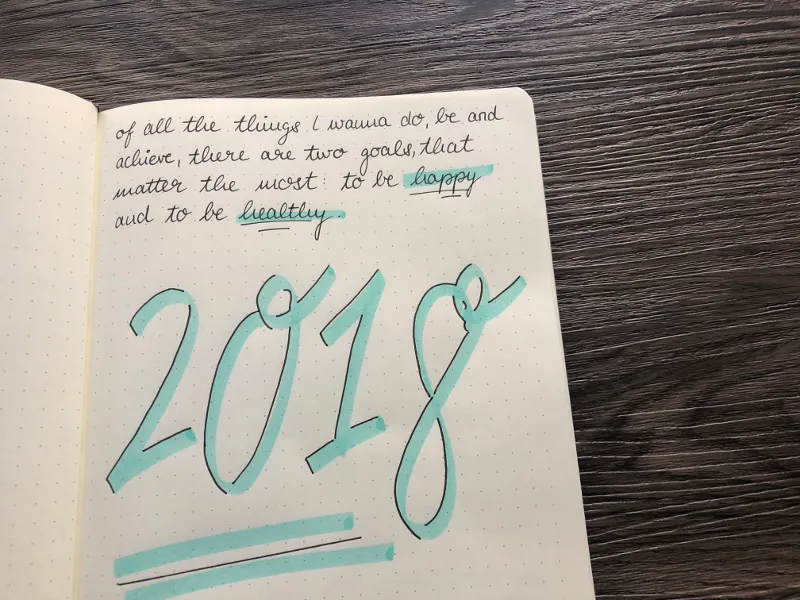 of all the things I wanna do, be and
achieve, there are two goals, that
matter the most: to be happy
and to be healthy.
2018